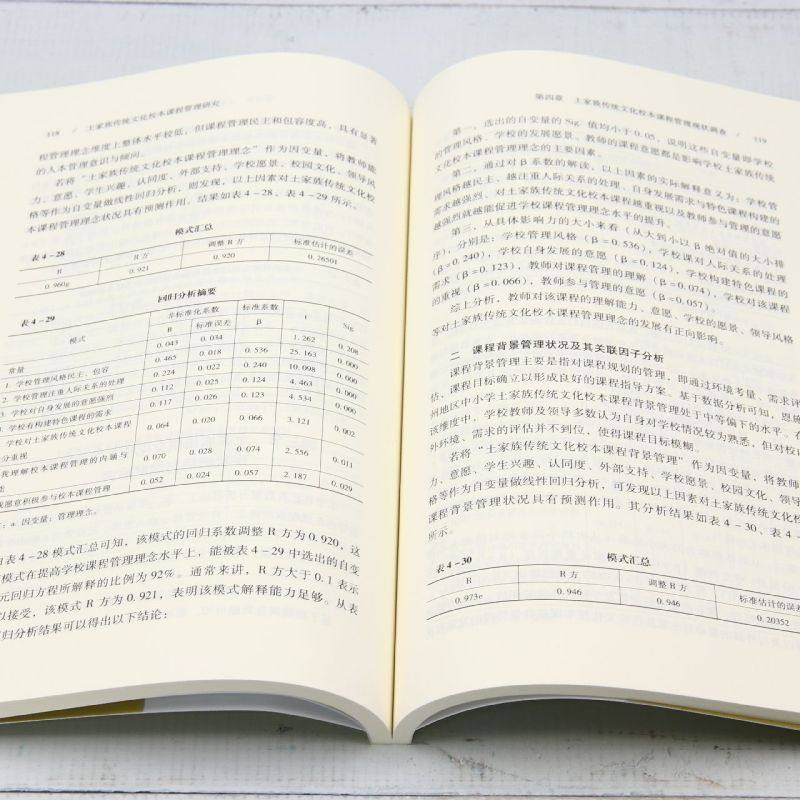 118 / 土家族传统文化校本课程管理研究
程管理理念维度上整体水平较低,但课程管理民主和包容度高,具有显著
的人本管理意识与倾向。
若将“土家族传统文化校本课程管理理念”作为因变量,将教师能
力、意愿、学生兴趣、认同度、外部支持、学校愿景、校园文化、领导风
格等作为自变量做线性回归分析,则发现,以上因素对土家族传统文化校
本课程管理理念状况具有预测作用。结果如表4-28、表4-29所示。
表4-28 模式汇总
R R方 调整R方 标准估计的误差
0.960g 0.921 0.920 0.26501
表4-29 回归分析摘要
模式 非标准化系数 标准系数 t Sig.
B 标准误差 β
常量 0.043 0.034 1.262 0.208
1. 学校管理风格民主、包容 0.465 0.018 0.536 25.163 0.000
2. 学校管理注重人际关系的处理 0.224 0.022 0.240 10.098 0.000
3. 学校对自身发展的意愿强烈 0.112 0.025 0.124 4.463 0.000
学校有构建特色课程的需求 0.117 0.026 0.123 4.534 0.000
学校对土家族传统文化校本课程
分重视 0.064 0.020 0.066 3.121 0.002
我理解校本课程管理的内涵与
能 0.070 0.028 0.074 2.556 0.011
我愿意积极参与校本课程管理 0.052 0.024 0.057 2.187 0.029
:a. 因变量:管理理念。
由表4-28模式汇总可知,该模式的回归系数调整R方为0.920,这
模式在提高学校课程管理理念水平上,能被表4-29中选出的自变
元回归方程所解释的比例为92%。通常来讲,R方大于0.1表示
以接受,该模式R方为0.921,表明该模式解释能力足够。从表
归分析结果可以得出以下结论:
第四章 土家族传统文化校本课程管理现状调查 / 119
第一,选出的自变量的Sig. 值均小于0.05,说明这些自变量即学校
的管理风格、学校的发展愿景、教师的课程意愿都是影响学校土家族传统
文化校本课程管理理念的主要因素。
第二,通过对β系数的解读,以上因素的实际解释意义为:学校管
理风格越民主、越注重人际关系的处理、自身发展需求与特色课程构建的
需求越强烈、对土家族传统文化校本课程越重视以及教师参与管理的意愿
越强烈就越能促进学校课程管理理念水平的提升。
第三,从具体影响力的大小来看(从大到小以β绝对值的大小排
序),分别是:学校管理风格(β=0.536),学校对人际关系的处理
(β=0.240),学校自身发展的意愿(β=0.124),学校构建特色课程的
需求(β=0.123),教师对课程管理的理解(β=0.074),学校对该课程
的重视(β=0.066),教师参与管理的意愿(β=0.057)。
综上分析,教师对该课程的理解能力、意愿、学校的愿景、领导风格
等对土家族传统文化校本课程管理理念的发展有正向影响。
二 课程背景管理状况及其关联因子分析
课程背景管理主要是指对课程规划的管理,即通过环境考量、需求评
估、课程目标确立以形成良好的课程指导方案。基于数据分析可知,恩施
州地区中小学土家族传统文化校本课程背景管理处于中等偏下的水平。在
该维度中,学校教师及领导多数认为自身对学校情况较为熟悉,但对校
外环境、需求的评估并不到位,使得课程目标模糊。
若将“土家族传统文化校本课程背景管理”作为因变量,将教师能
力、意愿、学生兴趣、认同度、外部支持、学校愿景、校园文化、领导
格等作为自变量做线性回归分析,可发现以上因素对土家族传统文化校本
课程背景管理状况具有预测作用。其分析结果如表4-30、表4-
所示。
表4-30 模式汇总
R R方 调整R方 标准估计的误差
0.973e 0.946 0.946 0.20352